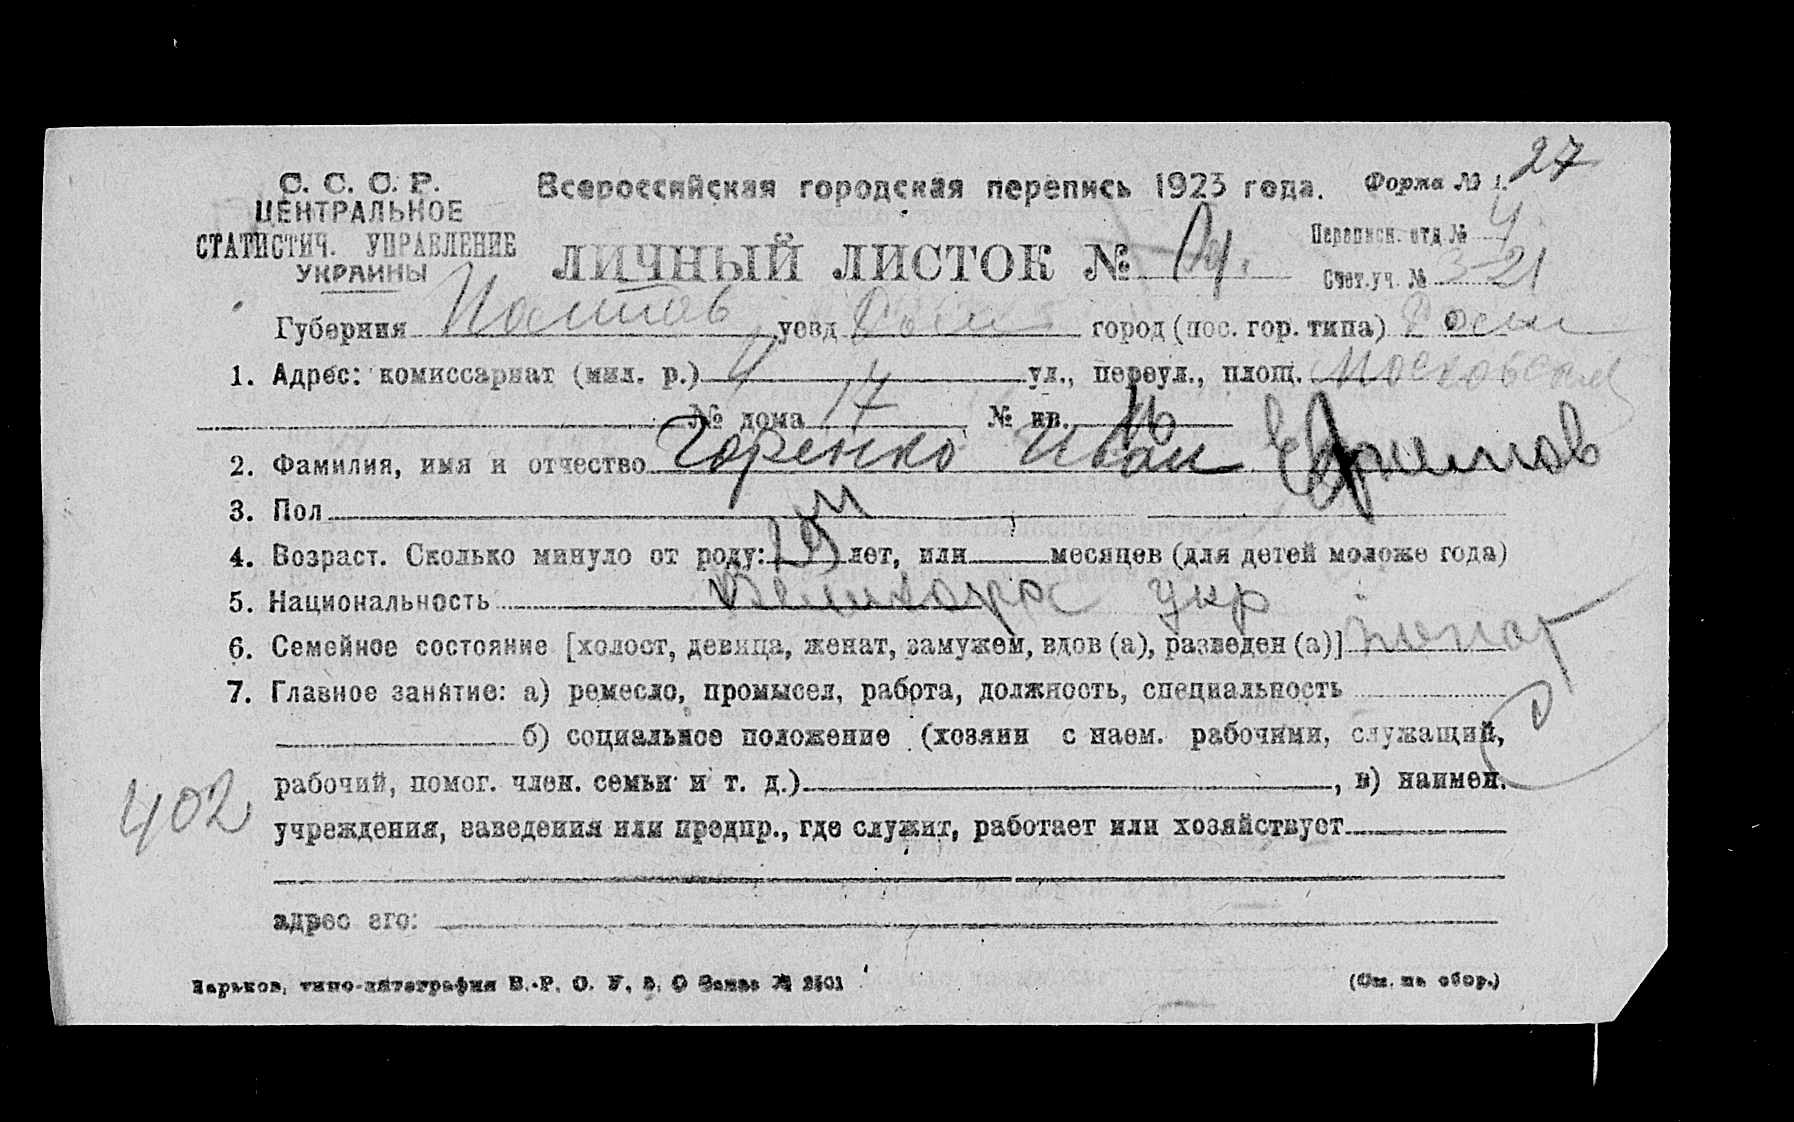 27
С. С. С. Р. Всероссийская городская перепись 1923 года. Форма № 1.
ЦЕНТРАЛЬНОЕ
СТАТИСТИЧ. УПРАВЛЕНИЕ
УКРАИНЫ
ЛИЧНЫЙ ЛИСТОК №
Переписн. отд № 4
Счет.уч. № 21
Губерния уезд город (пос. гор. типа)
1. Адрес: комиссариат (мил. р.) 4 ул., переул., площ. Московская
№ дома 17 № кв. 16
2. Фамилия, имя и отчество Горенко Иван Ефимов
3. Пол м
4. Возраст. Сколько минуло от роду: 19 лет, или месяцев (для детей моложе года)
5. Национальность укр
6. Семейное состояние [холост, девица, женат, замужем, вдов (а), разведен (а)]
7. Главное занятие: а) ремесло, промысел, работа, должность, специальность
б) социальное положение (хозяин с наем. рабочими, служащий,
рабочий, помог. член. семьи и т. д.) , в) наимен.
402
учреждения, заведения или предпр., где служит, работает или хозяйствует
адрес его:
Харьков, типо-литография В.-Р. О. У. В. О Заказ № 2501 (См. на обор.)